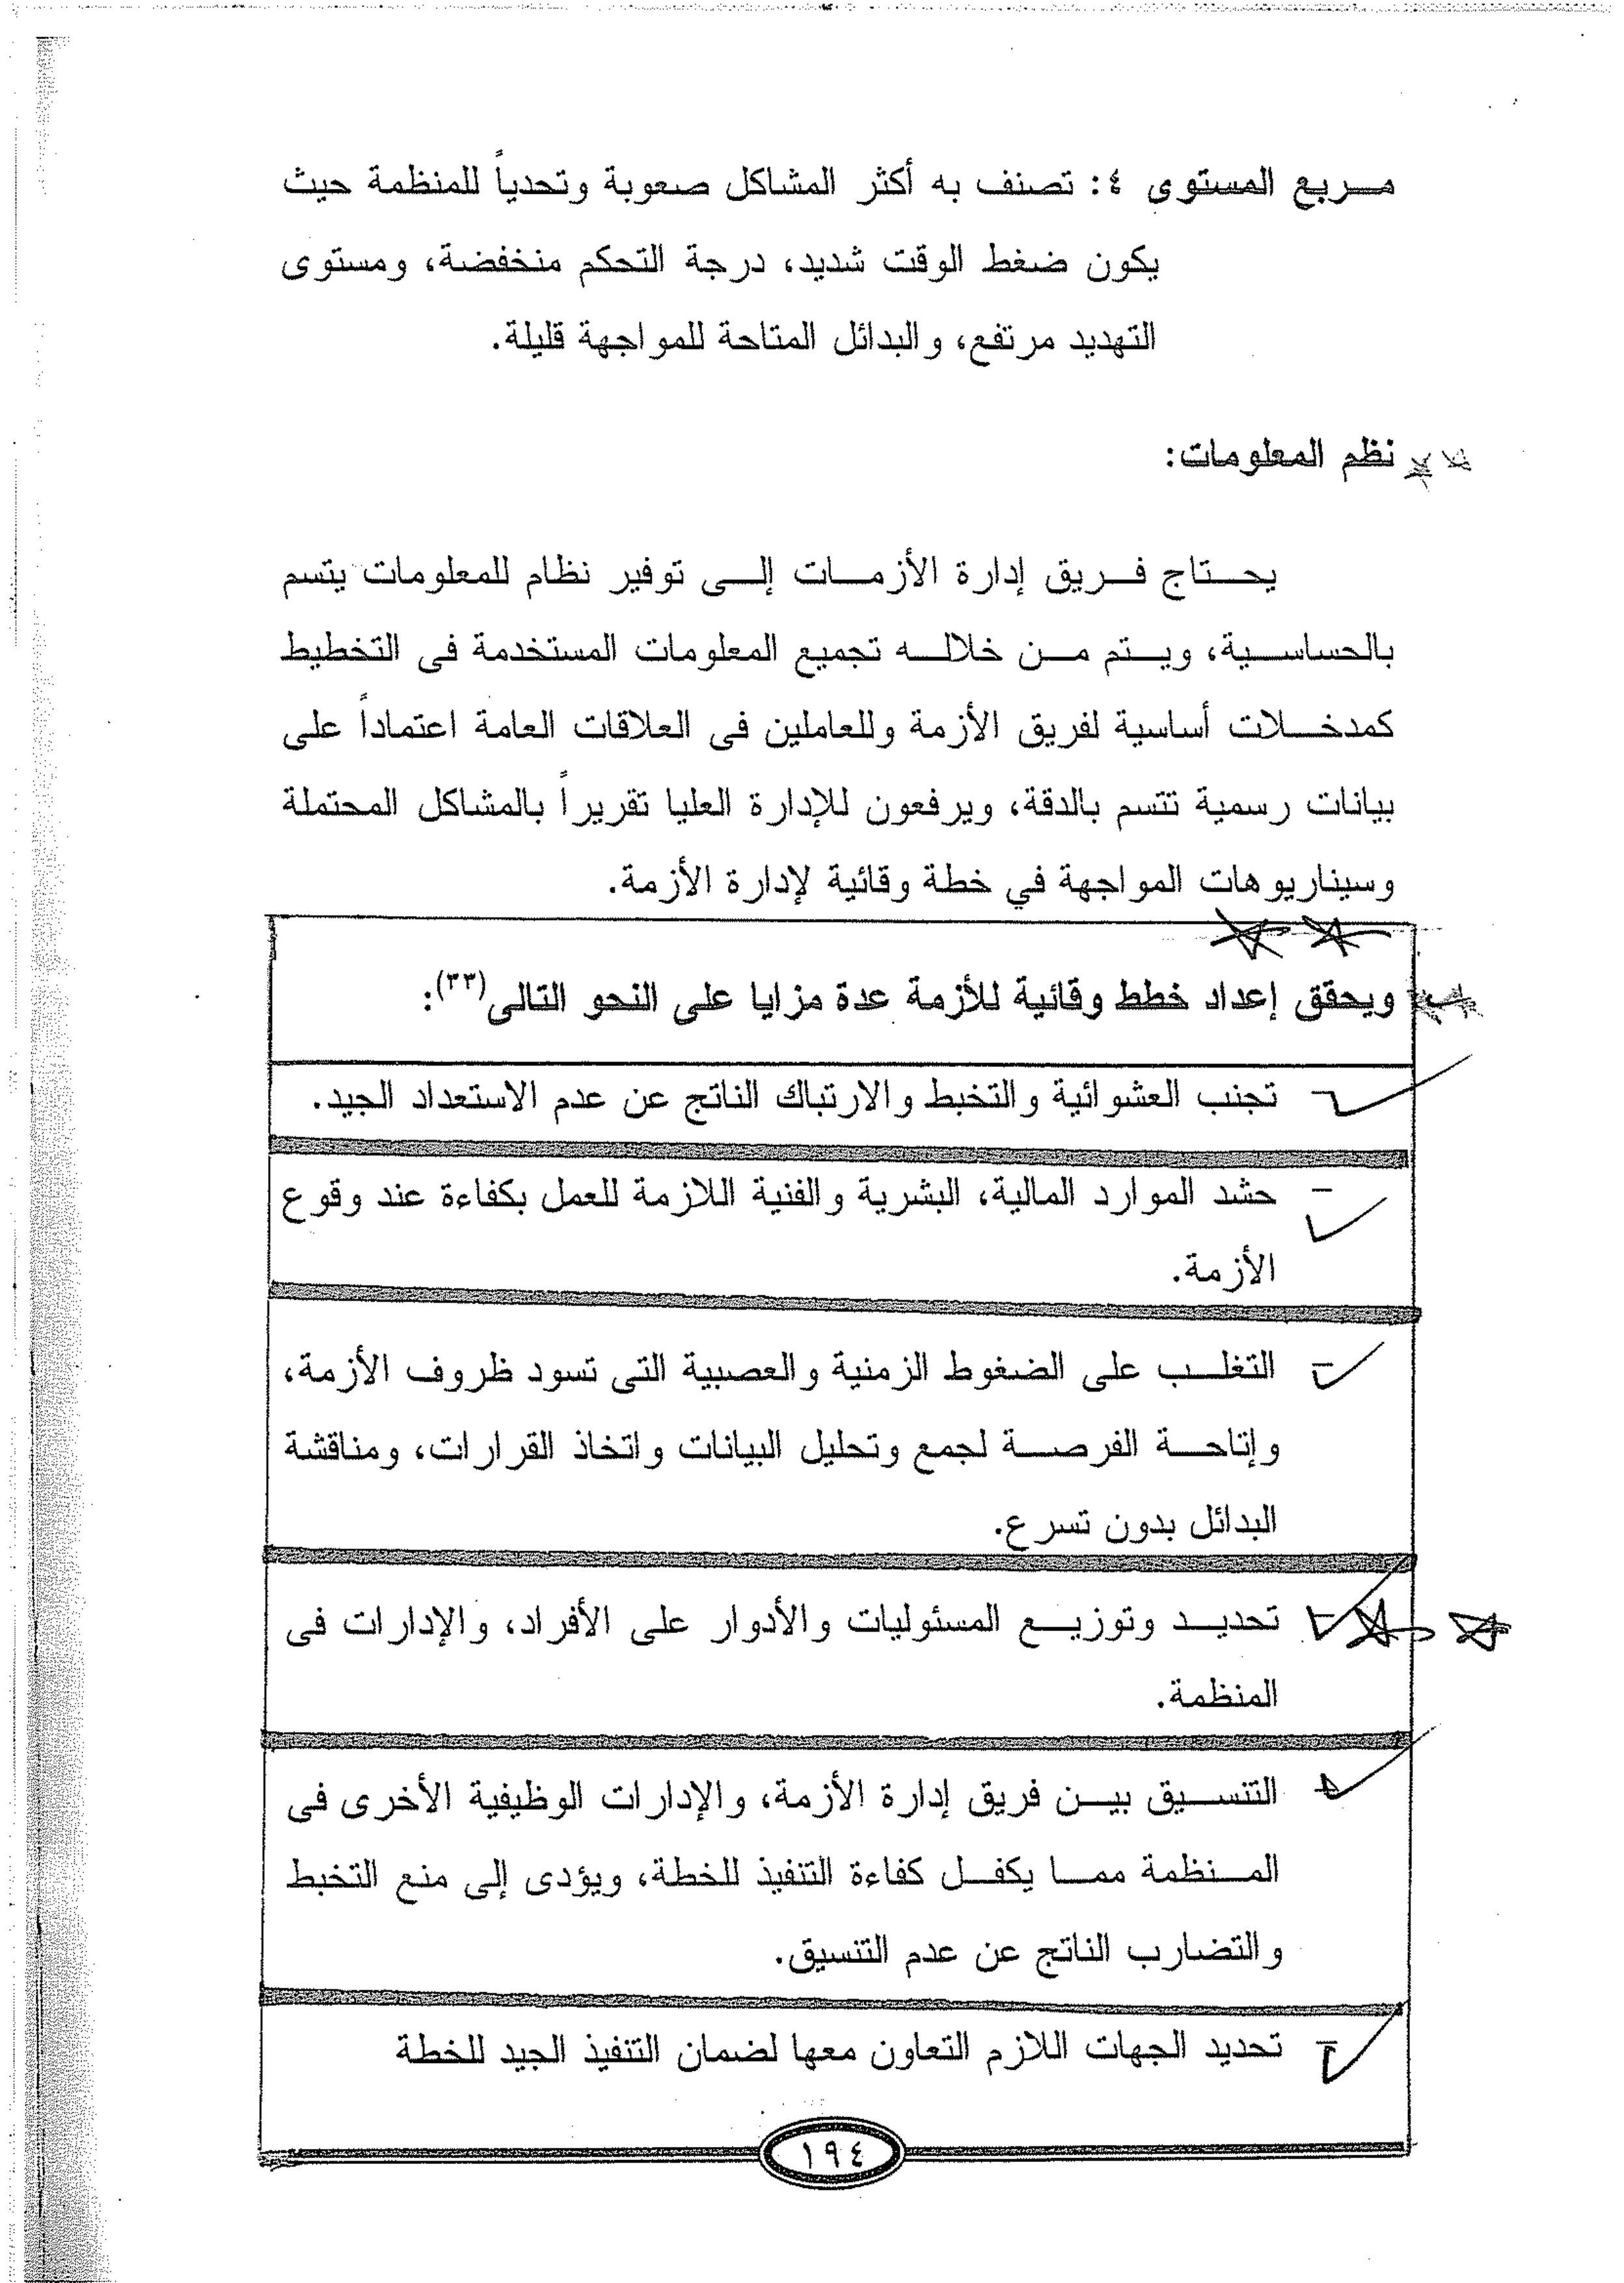 مربع المستوى ٤: تصنف به أكثر المشاكل صعوبة وتحدياً للمنظمة حيث
يكون ضغط الوقت شديد، درجة التحكم منخفضة، ومستوى
التهديد مرتفع، والبدائل المتاحة للمواجهة قليلة.
نظم المعلومات:
يحتاج فريق إدارة الأزمات إلى توفير نظام للمعلومات يتسم
بالحساسية، ويتم من خلاله تجميع المعلومات المستخدمة فى التخطيط
كمدخلات أساسية لفريق الأزمة وللعاملين فى العلاقات العامة اعتماداً على
بيانات رسمية تتسم بالدقة، ويرفعون للإدارة العليا تقريراً بالمشاكل المحتملة
وسيناريوهات المواجهة في خطة وقائية لإدارة الأزمة.
ويحقق إعداد خطط وقائية للأزمة عدة مزايا على النحو التالى(٣٣):
- تجنب العشوائية والتخبط والارتباك الناتج عن عدم الاستعداد الجيد.
- حشد الموارد المالية، البشرية والفنية اللازمة للعمل بكفاءة عند وقوع
الأزمة.
- التغلب على الضغوط الزمنية والعصبية التى تسود ظروف الأزمة،
وإتاحة الفرصة لجمع وتحليل البيانات واتخاذ القرارات، ومناقشة
البدائل بدون تسرع.
- تحديد وتوزيع المسئوليات والأدوار على الأفراد، والإدارات فى
المنظمة.
- التنسيق بين فريق إدارة الأزمة، والإدارات الوظيفية الأخرى فى
المنظمة مما يكفل كفاءة التنفيذ للخطة، ويؤدى إلى منع التخبط
والتضارب الناتج عن عدم التنسيق.
- تحديد الجهات اللازم التعاون معها لضمان التنفيذ الجيد للخطة
١٩٤